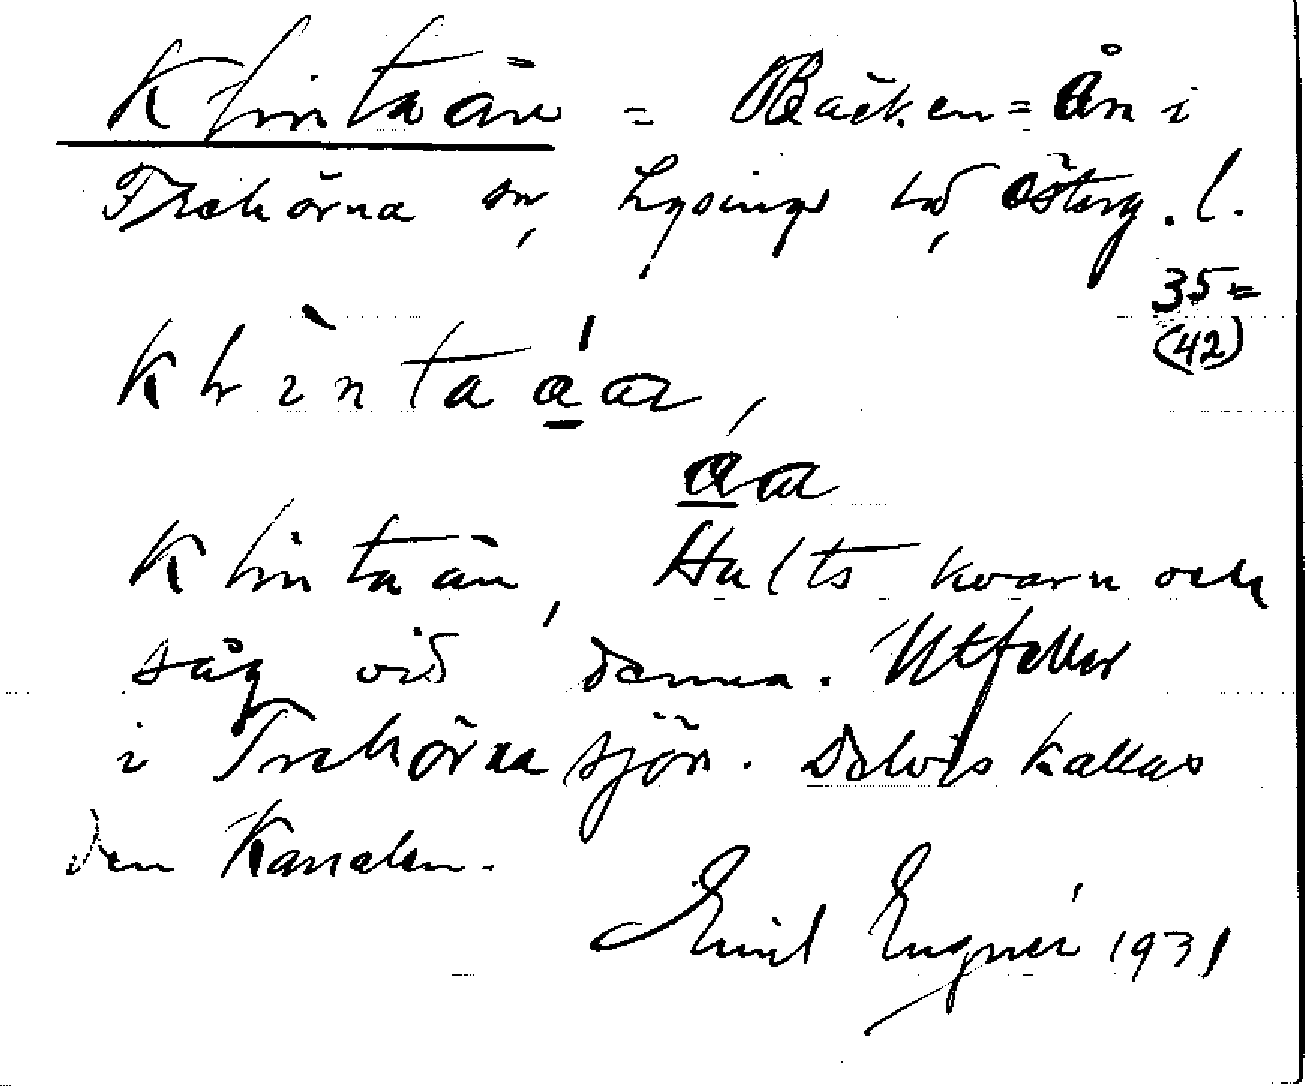 Klintaån = Bäcken = Ån i
Trehörna sn, Lysings hd, Österg. l.
35=
(42)
Klìnta áa,
áa
Klintaån, Hults kvarn och
såg vid denna. Utfaller
i Trehörnasjön. Delvis kallas
den Kanalen.
Emil Engnér 1931